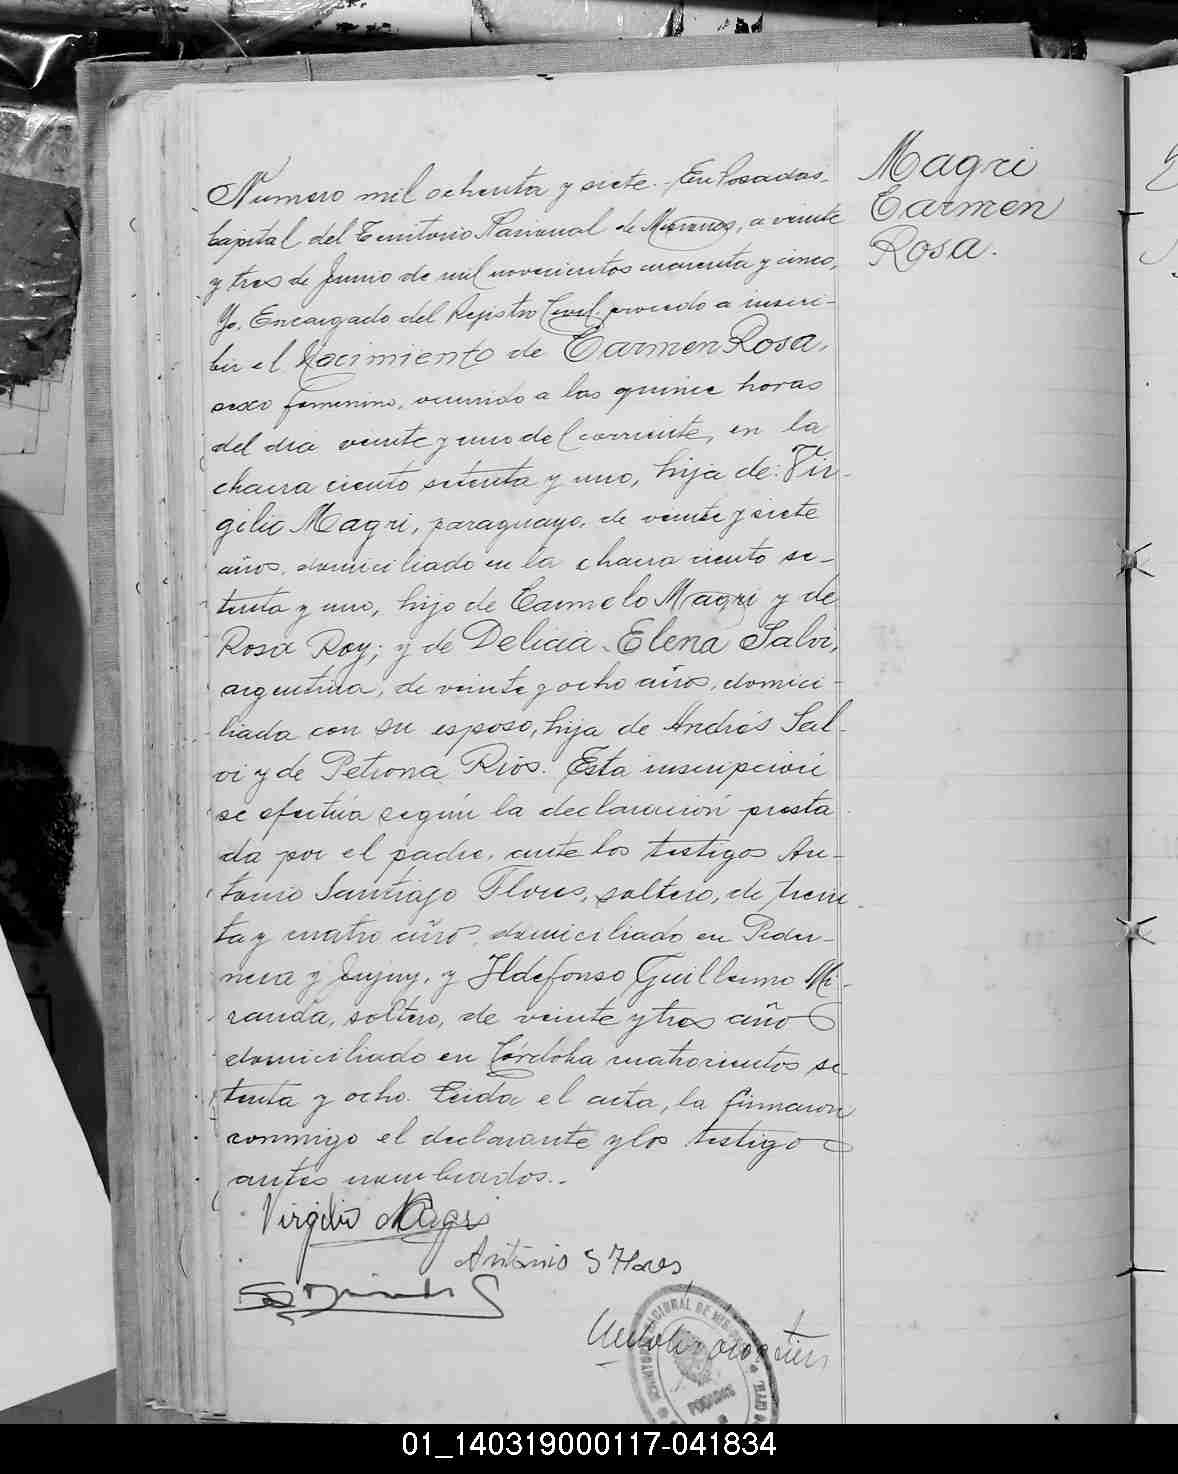 Magri
Carmen
Rosa.
Numero mil ochenta y siete. En Posadas,
Capital del Territorio Nacional de Misiones, a veinte
y tres de Junio de mil novecientos cuarenta y cinco,
Yo, Encargado del Rejistro Civil, procedo a inscri-
bir el Nacimiento de Carmen Rosa,
sexo femenino, ocurrido a las quince horas
del dia veinte y uno del corriente, en la
chacra ciento setenta y uno, hija de: Vir-
gilio Magri, paraguayo, de veinte y siete
años, domiciliado en la chacra ciento se-
tenta y uno, hijo de Carmelo Magri y de
Rosa Roy; y de Delicia Elena Salvi,
argentina, de veinte y ocho años, domici-
liada con su esposo, hija de Andrés Sal-
vi y de Petrona Rios. Esta inscripción
se efectúa según la declaración presta
da por el padre, ante los testigos An-
tonio Santiago Flores, soltero, de trein
ta y cuatro años, domiciliado en Peder-
nera y Jujuy, y Ildefonso Guillermo Mi-
randa, soltero, de veinte y tres años
domiciliado en Córdoba cuatrocientos se-
tenta y ocho. Leida el acta, la firmaron
conmigo el declarante y los testigos
antes nombrados.-
Virgilio Magri
Antonio S Flores
NACIONAL DE MIS
POSADAS
01_140319000117-041834